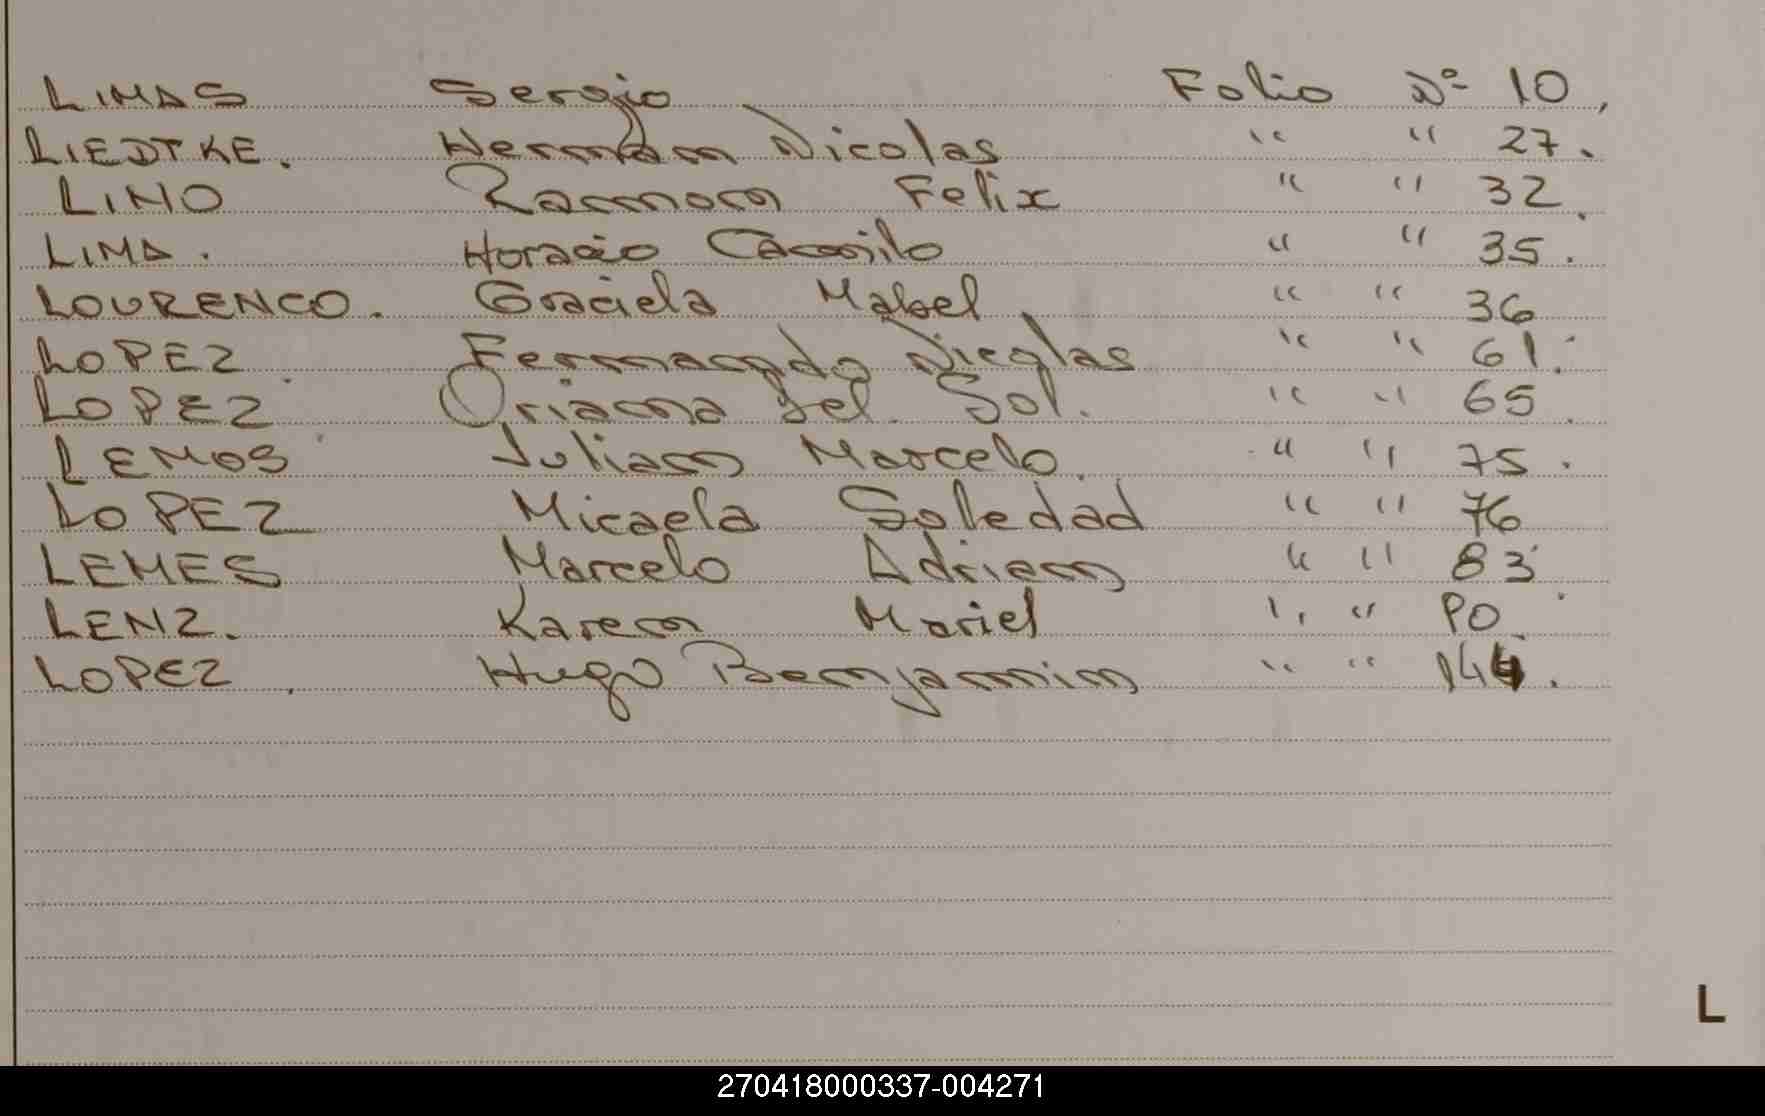 LIMAS Sergio Folio Nº 10,
LIEDTKE. Hernan Nicolas " " 27.
LINO Ramon Felix " " 32.
LIMA. Horacio Camilo " " 35.
LOURENCO. Graciela Mabel " " 36
LOPEZ. Fernando " " 61.
LOPEZ Oriana del Sol. " " 65.
LEMOS Julian Marcelo. " " 75.
LOPEZ Micaela Soledad " " 76
LEMES Marcelo Adrian " " 83
LENZ. Karen Mariel " "
LOPEZ. Hugo Benjamin " " 144.
L
270418000337-004271